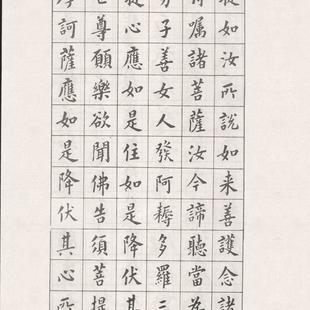 提如汝所說如来善護念諸
付囑諸菩薩汝今諦聽當為
子善女人發阿耨多羅三
提心應如是住如是降伏其
世尊願樂欲聞佛告須菩提
訶薩應如是降伏其心所